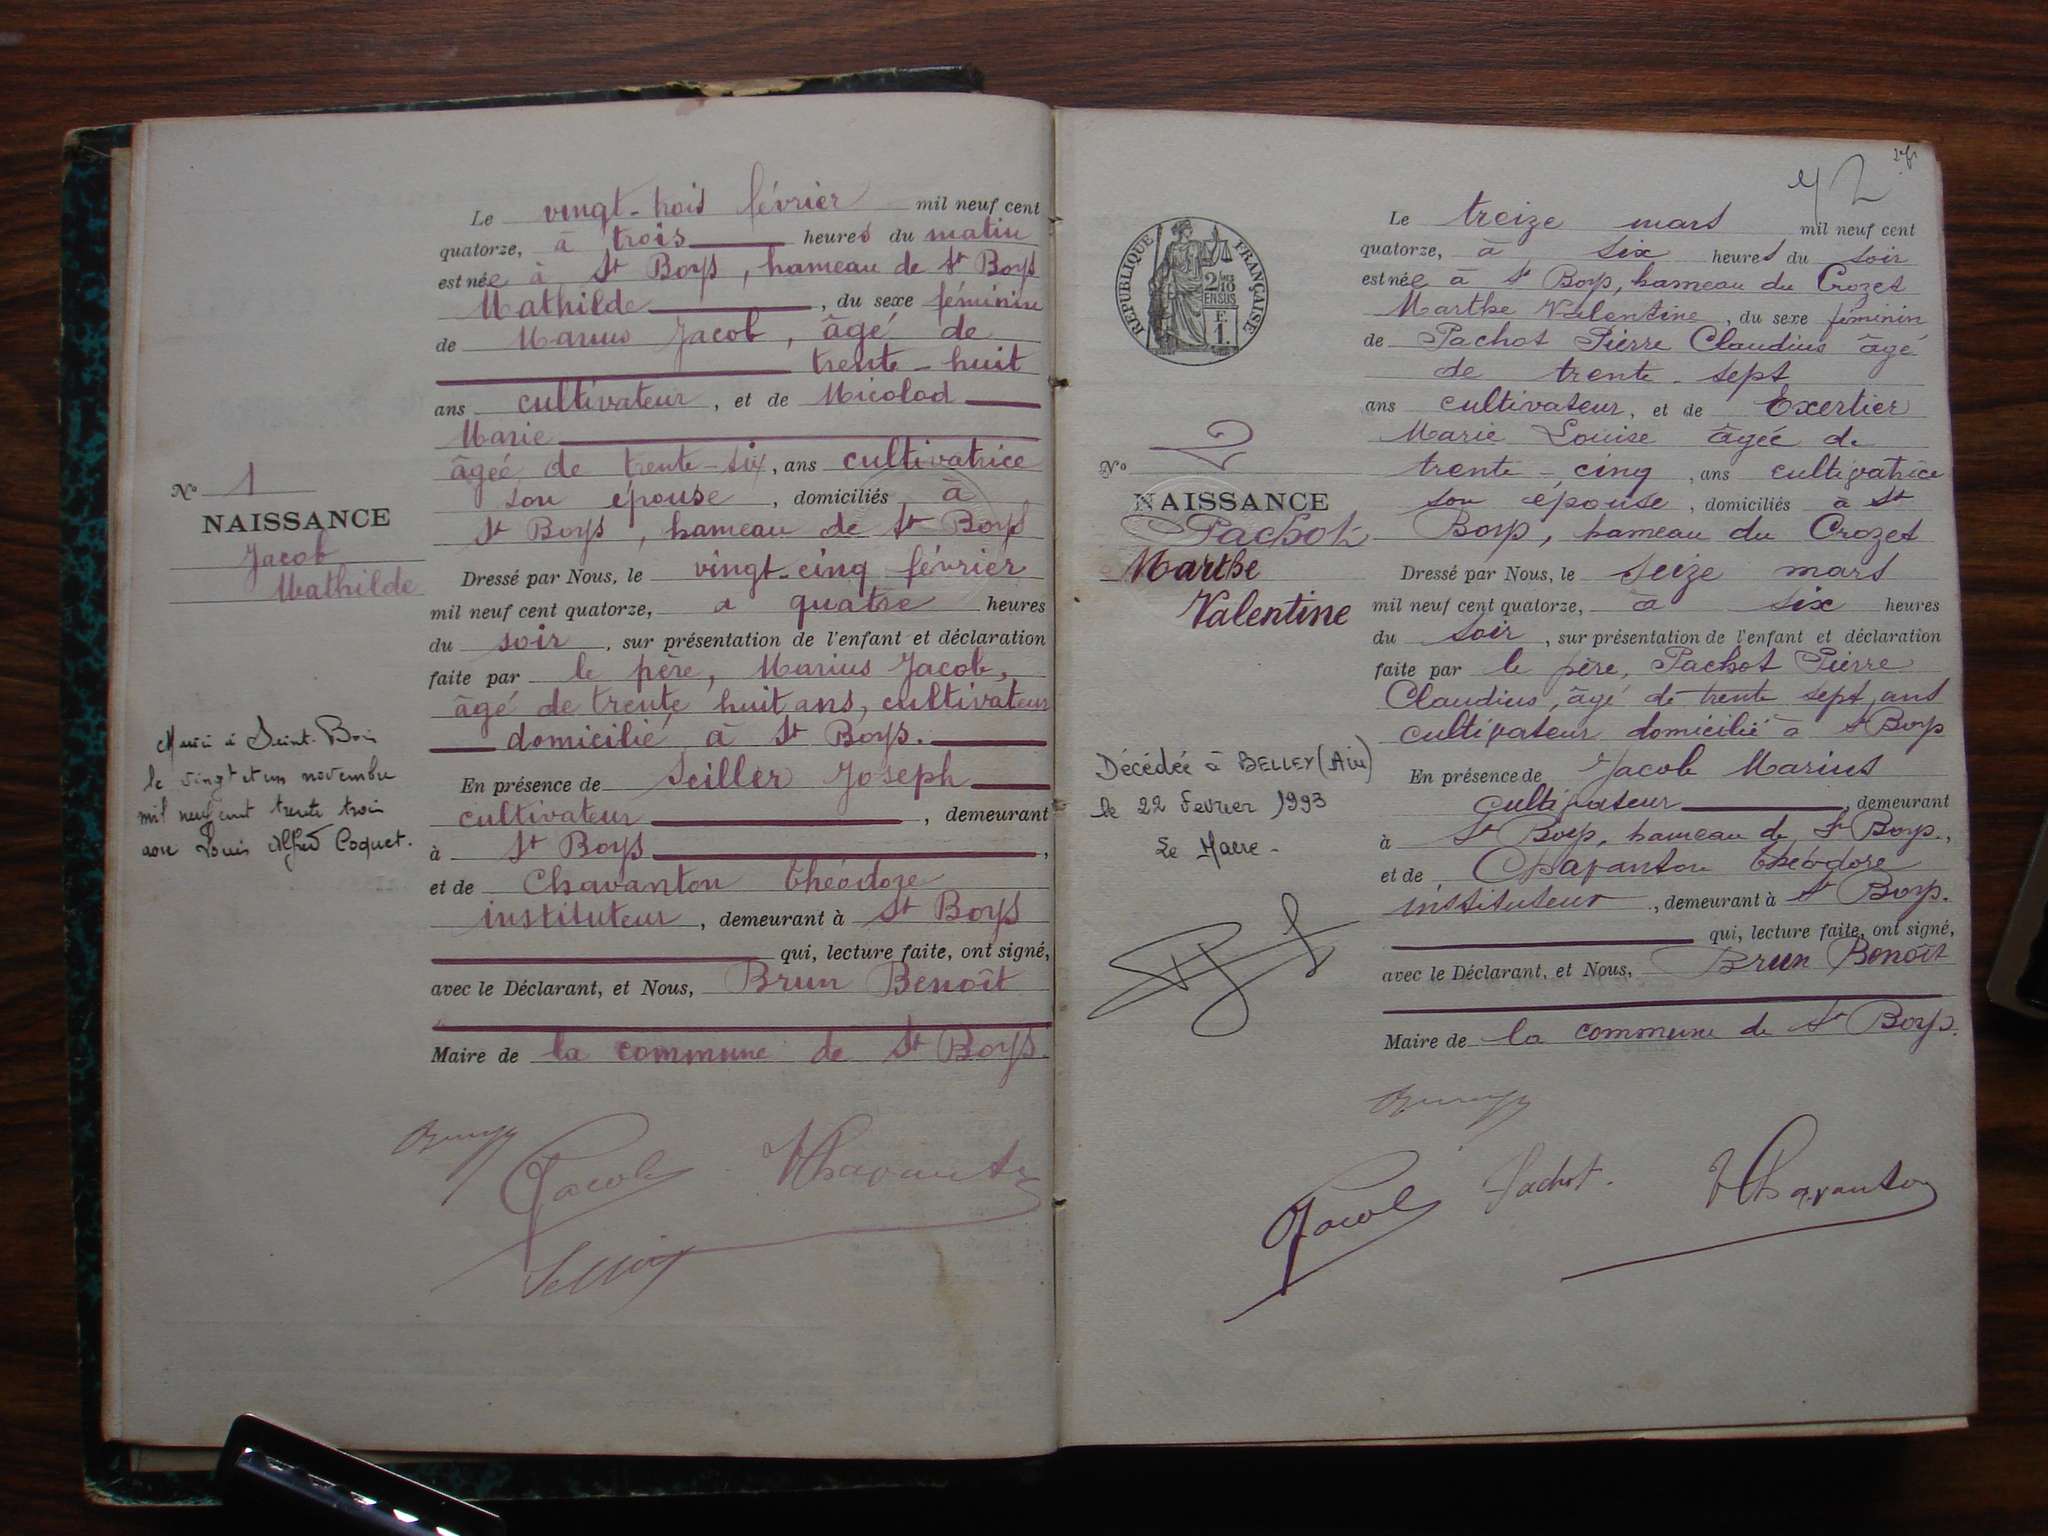 Le vingt-trois février mil neuf cent
quatorze, à trois heures du matin
est née à St Boys, hameau de St Boys
Mathilde, du sexe féminin
de Marius Jacob, âgé de
trente-huit
ans cultivateur, et de Micolod
Marie
âgée de trente-six, ans cultivatrice
son épouse, domiciliés à
St Boys, hameau de St Boys
Dressé par Nous, le vingt-cinq février
mil neuf cent quatorze, a quatre heures
du soir, sur présentation de l'enfant et déclaration
faite par le père, Marius Jacob,
âgé de trente huit ans, cultivateur
domicilié à St Boys.
En présence de Seiller Joseph
cultivateur, demeurant
à St Boys,
et de Chavanton théodore
instituteur, demeurant à St Boys
qui, lecture faite, ont signé,
avec le Déclarant, et Nous, Brun Benoît
Maire de la commune de St Boys.
No 1
NAISSANCE
Jacob
Mathilde
à Saint-Bois
le vingt et un novembre
mil neuf cent trente trois
avec Louis Alfred Coquet.
Jacob
Chavanton
2
RÉPUBLIQUE FRANÇAISE
2/10
EN SUS
F.
1.
No 2
NAISSANCE
Pachot
Marthe
Valentine
Décédée à BELLEY (Ain)
le 22 Fevrier 1993
Le Maire -
Le treize mars mil neuf cent
quatorze, à six heures du soir
est née à St Boys, hameau du Crozet
Marthe Valentine, du sexe féminin
de Pachot Pierre Claudius âgé
de trente-sept
ans cultivateur, et de Exertier
Marie Louise âgée de
trente-cinq, ans cultivatrice
son épouse, domiciliés à St
Boys, hameau du Crozet
Dressé par Nous, le seize mars
mil neuf cent quatorze, à six heures
du soir, sur présentation de l'enfant et déclaration
faite par le père, Pachot Pierre
Claudius, âgé de trente sept ans
cultivateur domicilié à St Boys
En présence de Jacob Marius
cultivateur, demeurant
à St Boys, hameau de St Boys,
et de Chavanton théodore
instituteur, demeurant à St Boys.
qui, lecture faite, ont signé,
avec le Déclarant, et Nous, Brun Benoît
Maire de la commune de St Boys.
Jacob
Pachot.
Chavanton